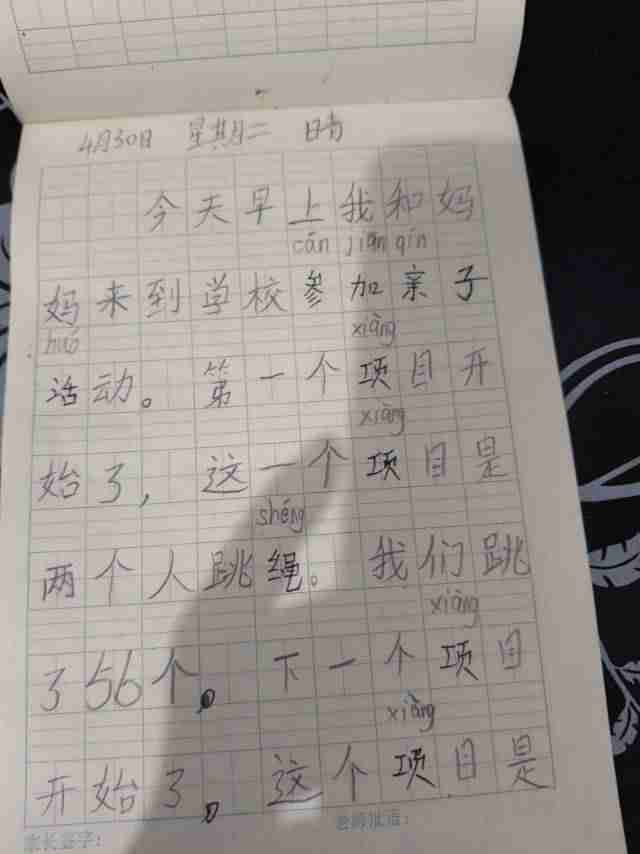 4月30日 星期二 晴
今天早上我和妈
cān jiān qín
妈来到学校参加亲子
huó xiàng
活动。第一个项目开
xiàng
始了,这一个项目是
shéng
两个人跳绳。我们跳
xiàng
了56个。下一个项目
xiàng
开始了。这个项目是
家长签字: 老师批语: